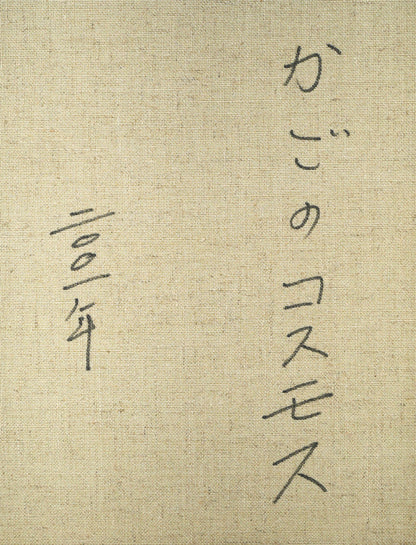 かごのコスモス
二〇〇一年